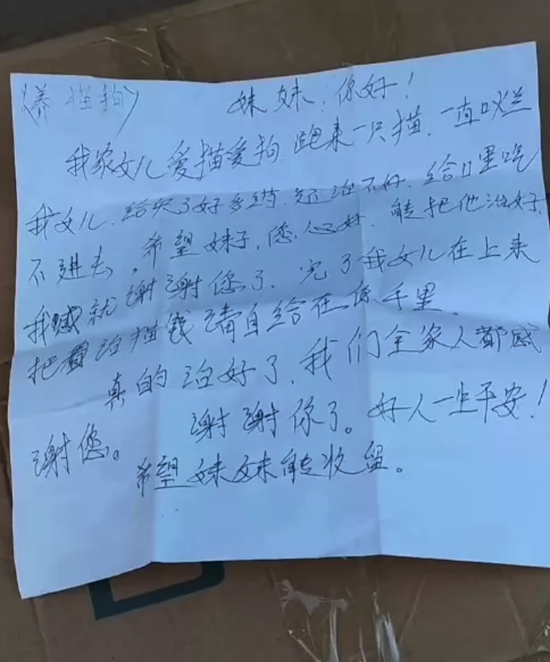 (养猫狗) 妹妹:你好!
我家女儿爱描爱拘.跑来一只描.一直口烂
我女儿.给吃了好多药.还治不好.给口里吃
不进去。希望妹子,您心好.能把他治好.
我就谢谢您了.完了我女儿在上来
把治描钱请自给在你手里.
真的治好了.我们全家人都感
谢您。 谢谢你了。好人一生平安!
希望妹妹能收留。